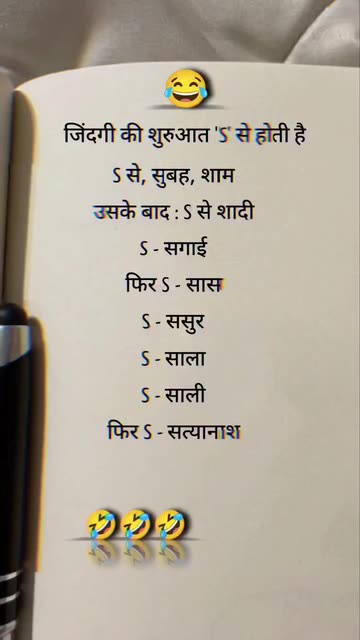 😂
जिंदगी की शुरुआत 'S' से होती है
S से, सुबह, शाम
उसके बाद : S से शादी
S - सगाई
फिर S - सास
S - ससुर
S - साला
S - साली
फिर S - सत्यानाश
🤣🤣🤣